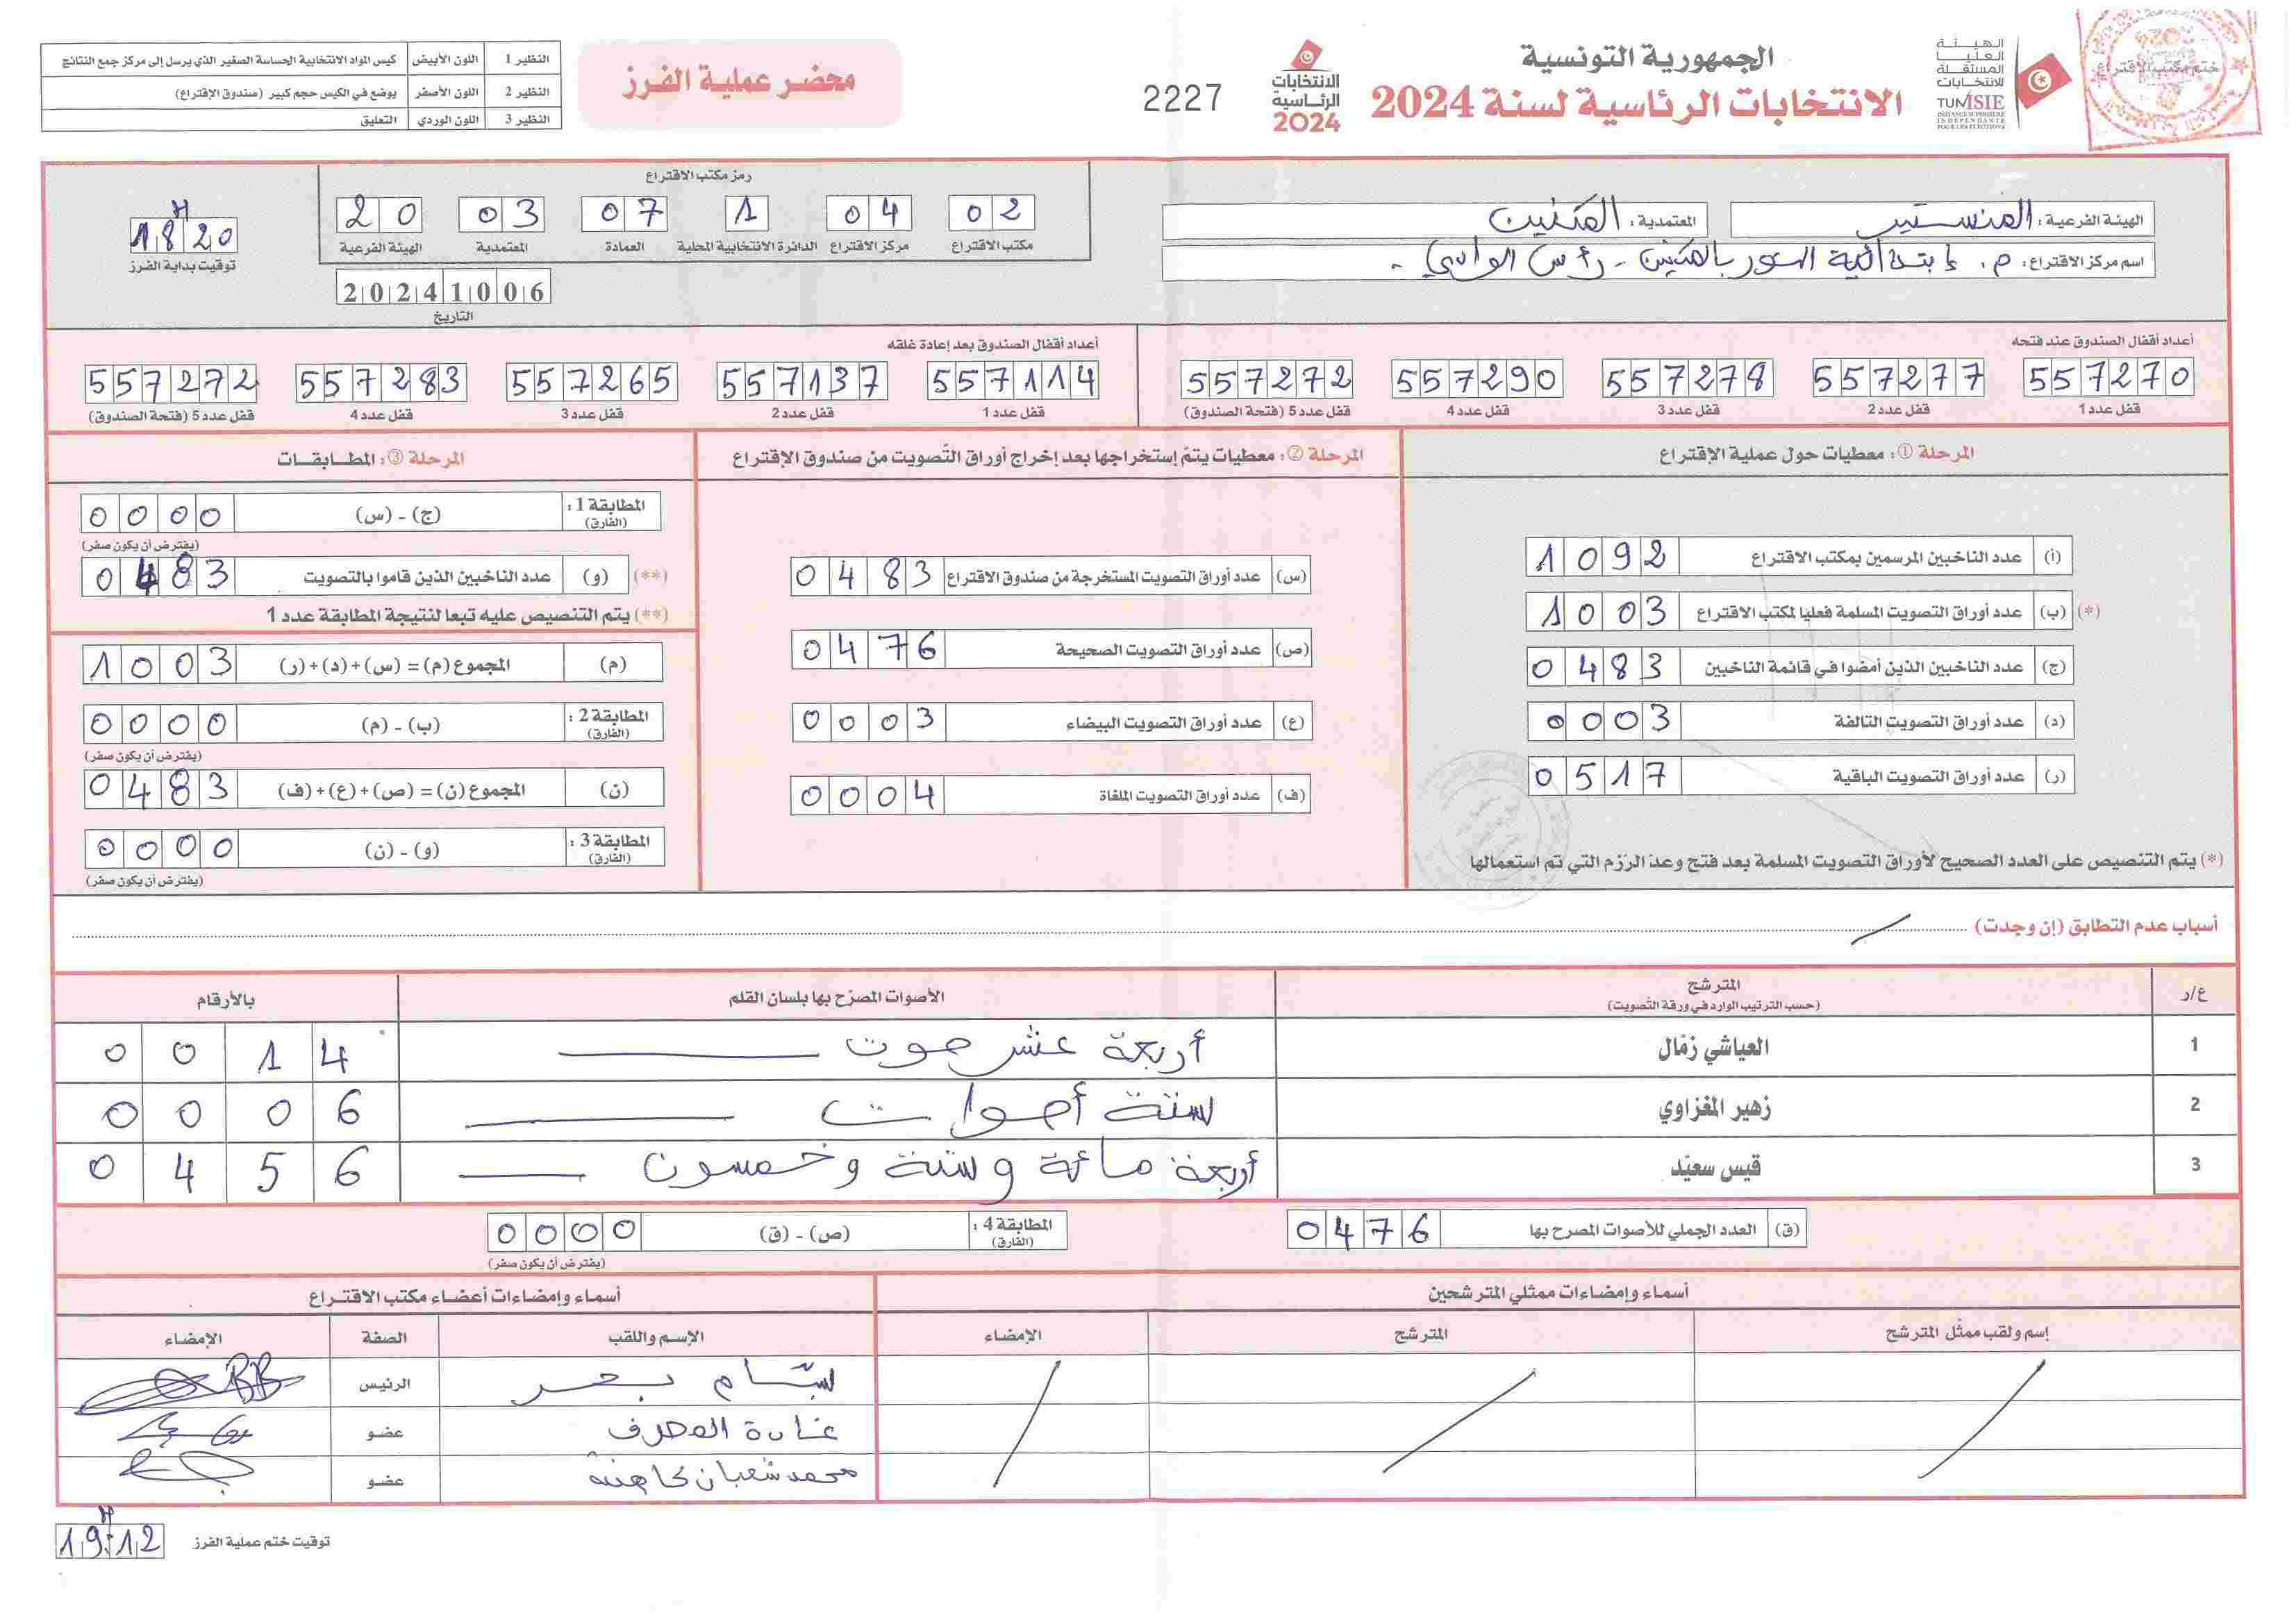 الجمهورية التونسية
الانتخابات الرئاسية لسنة 2024
الهيئة العليا المستقلة للانتخابات
TUNISIE
INSTANCE SUPERIEURE INDEPENDANTE POUR LES ELECTIONS
ختم مكتب الاقتراع
الانتخابات الرئاسية 2024
2227
محضر عملية الفرز
النظير 1 اللون الأبيض كيس المواد الانتخابية الحساسة الصغير الذي يرسل إلى مركز جمع النتائج
النظير 2 اللون الأصفر يوضع في الكيس حجم كبير (صندوق الإقتراع)
النظير 3 اللون الوردي التعليق
الهيئة الفرعية: المنستير المعتمدية: المكنين
اسم مركز الاقتراع: م. ابتدائية السور بالمكنين - رأس الوادي -
رمز مكتب الاقتراع
02 04 1 07 03 20
مكتب الاقتراع مركز الاقتراع الدائرة الانتخابية المحلية العمادة المعتمدية الهيئة الفرعية
20241006
التاريخ
18H20
توقيت بداية الفرز
أعداد أقفال الصندوق عند فتحه
557270 557277 557278 557290 557272
قفل عدد 1 قفل عدد 2 قفل عدد 3 قفل عدد 4 قفل عدد 5 (فتحة الصندوق)
أعداد أقفال الصندوق بعد إعادة غلقه
557114 557137 557265 557283 557272
قفل عدد 1 قفل عدد 2 قفل عدد 3 قفل عدد 4 قفل عدد 5 (فتحة الصندوق)
المرحلة ①: معطيات حول عملية الإقتراع
(أ) عدد الناخبين المرسمين بمكتب الاقتراع 1092
(*) (ب) عدد أوراق التصويت المسلمة فعليا لمكتب الاقتراع 1003
(ج) عدد الناخبين الذين أمضوا في قائمة الناخبين 0483
(د) عدد أوراق التصويت التالفة 0003
(ر) عدد أوراق التصويت الباقية 0517
(*) يتم التنصيص على العدد الصحيح لأوراق التصويت المسلمة بعد فتح وعدّ الرّزم التي تم استعمالها
المرحلة ②: معطيات يتمّ إستخراجها بعد إخراج أوراق التّصويت من صندوق الإقتراع
(س) عدد أوراق التصويت المستخرجة من صندوق الاقتراع 0483
(ص) عدد أوراق التصويت الصحيحة 0476
(ع) عدد أوراق التصويت البيضاء 0003
(ف) عدد أوراق التصويت الملغاة 0004
المرحلة ③: المطابقات
المطابقة 1: (الفارق) (ج) - (س) 0000
(يفترض أن يكون صفر)
(**) (و) عدد الناخبين الذين قاموا بالتصويت 0483
(**) يتم التنصيص عليه تبعا لنتيجة المطابقة عدد 1
(م) المجموع (م) = (س)+(د)+(ر) 1003
المطابقة 2: (الفارق) (ب) - (م) 0000
(يفترض أن يكون صفر)
(ن) المجموع (ن) = (ص)+(ع)+(ف) 0483
المطابقة 3: (الفارق) (و) - (ن) 0000
(يفترض أن يكون صفر)
أسباب عدم التطابق (إن وجدت)
ع/ر المترشح (حسب الترتيب الوارد في ورقة التّصويت) الأصوات المصرّح بها بلسان القلم بالأرقام
1 العياشي زمّال أربعة عشر صوت 0014
2 زهير المغزاوي ستة أصوات 0006
3 قيس سعيّد أربعة مائة وستة وخمسون 0456
(ق) العدد الجملي للأصوات المصرح بها 0476
المطابقة 4: (الفارق) (ص) - (ق) 0000
(يفترض أن يكون صفر)
أسماء وإمضاءات ممثلي المترشحين
إسم ولقب ممثّل المترشح المترشح الإمضاء
أسماء وإمضاءات أعضاء مكتب الاقتراع
الإسم واللقب الصفة الإمضاء
بسّام الرئيس
غادة عضو
محمد شعبان عضو
توقيت ختم عملية الفرز 19H12